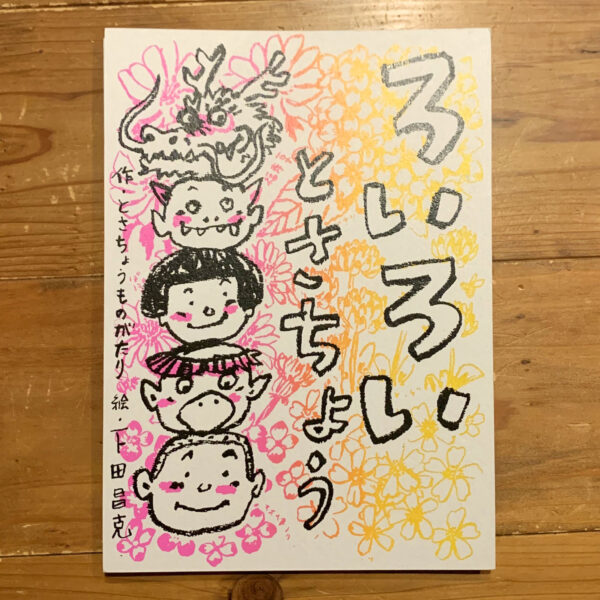 ろいろい
とさちょう
作・とさちょうものがたり 絵・下田昌克